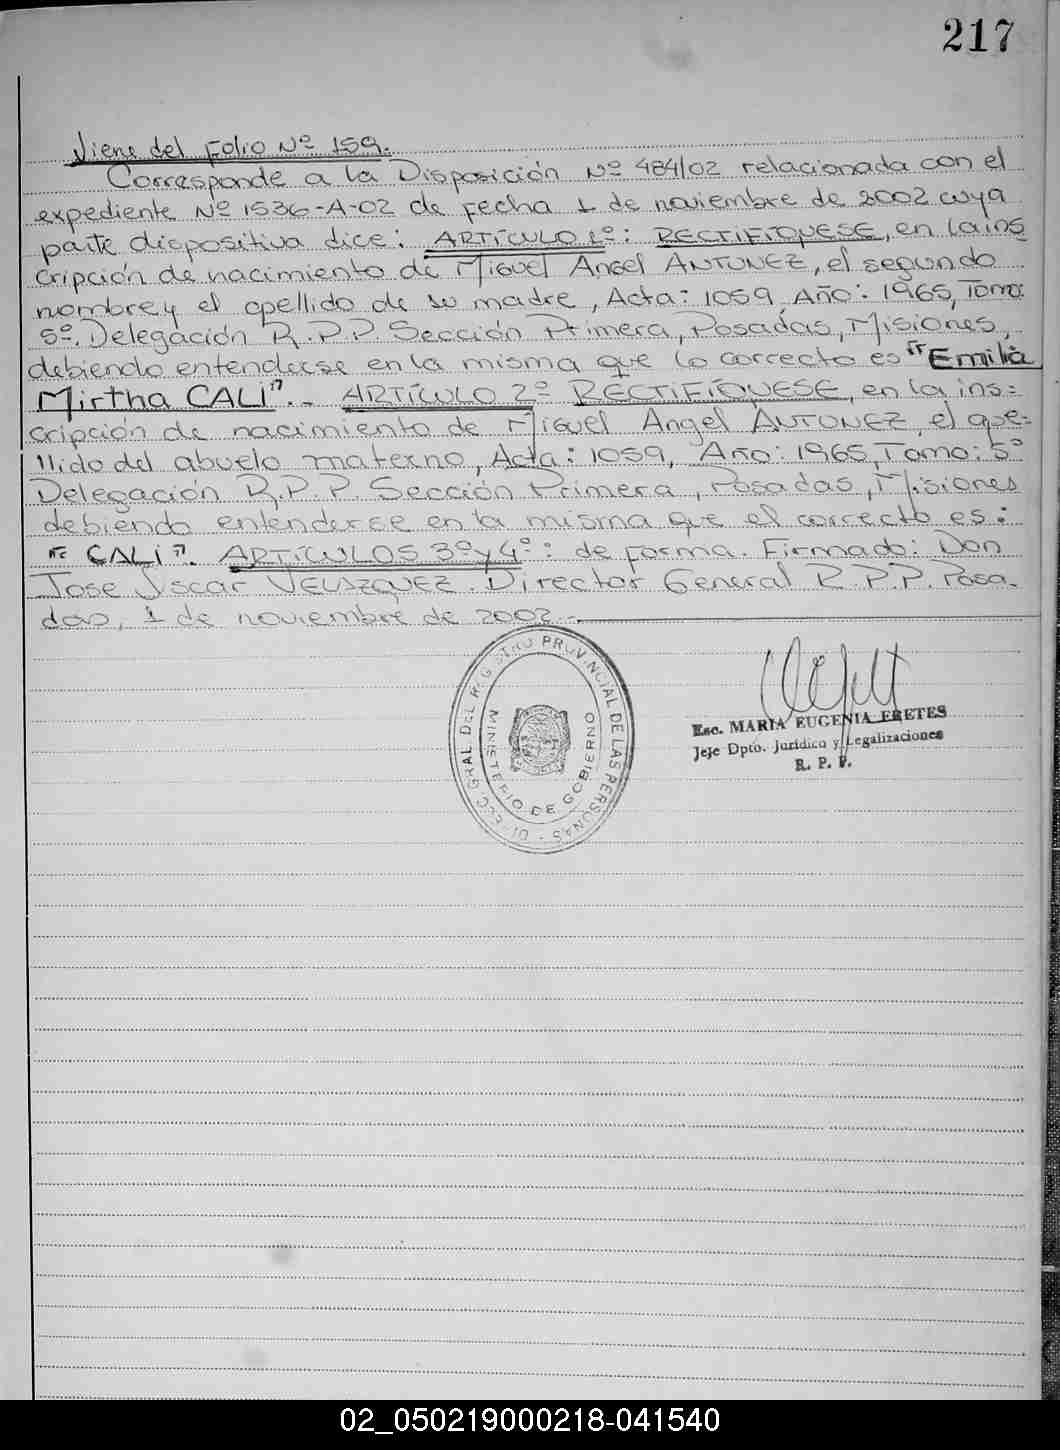 217
Viene del Folio Nº 159.
Corresponde a la Disposición Nº 484/02 relacionada con el
expediente Nº 1536-A-02 de fecha 1 de noviembre de 2002 cuya
parte dispositiva dice: ARTÍCULO 1º: RECTIFÍQUESE, en la ins
cripción de nacimiento de Miguel Angel ANTUNEZ, el segundo
nombre y el apellido de su madre, Acta: 1059 Año: 1965, Tomo:
5º, Delegación R.P.P. Sección Primera, Posadas, Misiones,
debiendo entenderse en la misma que lo correcto es "Emilia
Mirtha CALI".- ARTÍCULO 2º RECTIFÍQUESE, en la ins=
cripción de nacimiento de Miguel Angel ANTUNEZ, el ape=
llido del abuelo materno, Acta: 1059, Año: 1965, Tomo: 5º
Delegación R.P.P. Sección Primera, Posadas, Misiones
debiendo entenderse en la misma que el correcto es:
"CALI". ARTÍCULOS 3º y 4º: de forma. Firmado: Don
Jose Oscar VELAZQUEZ. Director General R.P.P. Posa-
das, 1 de noviembre de 2002.-
DIRECC. GRAL. DEL REGISTRO PROVINCIAL DE LAS PERSONAS -
MINISTERIO DE GOBIERNO
Esc. MARIA EUGENIA FRETES
Jefe Dpto. Jurídico y Legalizaciones
R. P. P.
02_050219000218-041540